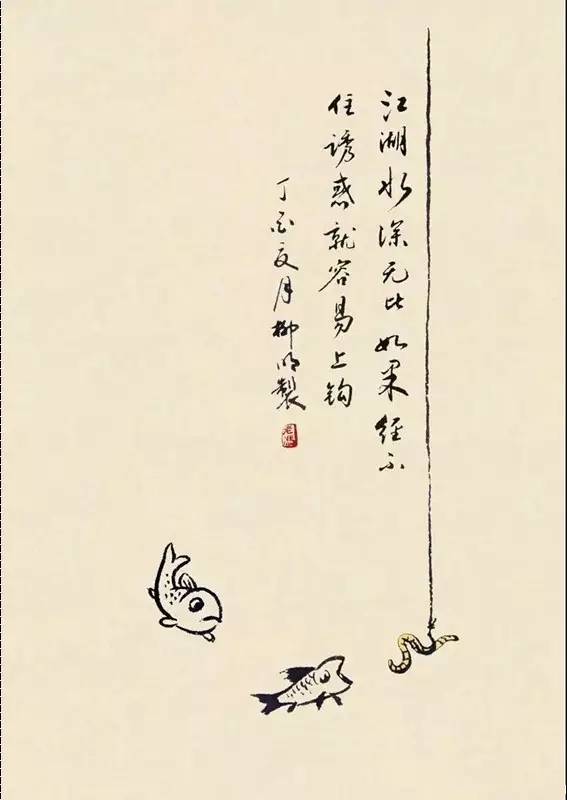 江湖水深无比如果经不
住诱惑就容易上钩
丁酉夏月柳明製